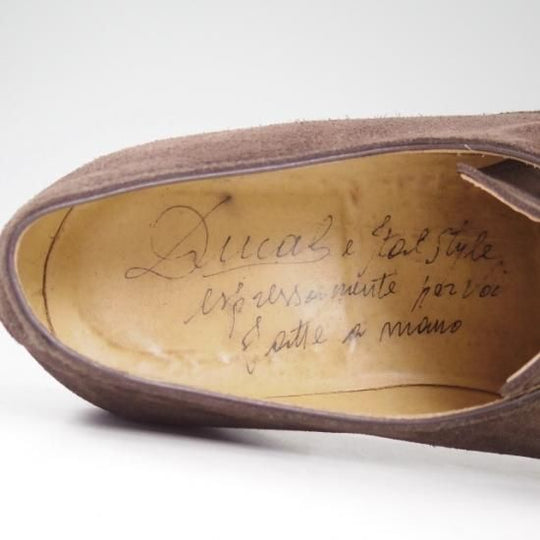 Ducal e Ital Style
espressamente per voi
fatte a mano